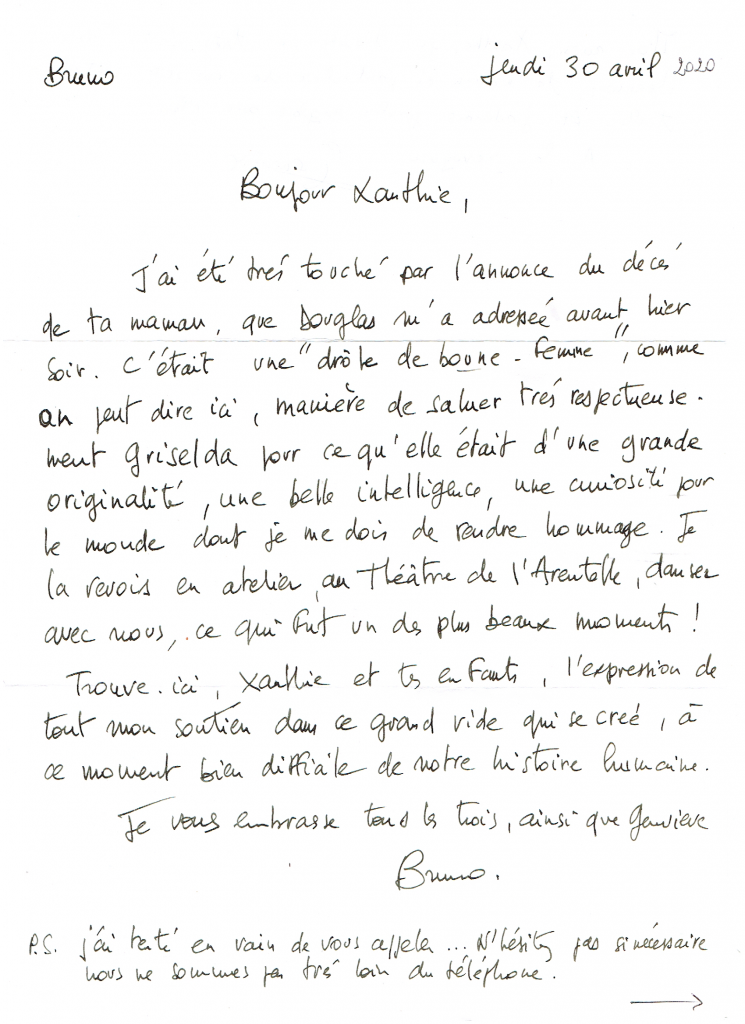 Bruno
jeudi 30 avril 2020
Bonjour Xanthie,
J'ai été trés touché par l'annonce du décés
de ta maman, que Douglas m'a adresseé avant hier
soir. C'était une "drôle de bonne-femme", comme
on peut dire ici, manière de saluer trés respectueuse-
ment Griselda pour ce qu'elle était d'une grande
originalité, une belle intelligence, une curiosité pour
le monde dont je me dois de rendre hommage. Je
la revois en atelier, au Théâtre de l'Arentelle, danser
avec nous, ce qui fut un des plus beaux moments !
Trouve-ici, Xanthie et tes enfants, l'expression de
tout mon soutien dans ce grand vide qui se creé, à
ce moment bien difficile de notre histoire humaine.
Je vous embrasse tous les trois, ainsi que Geneviève
Bruno.
P.S. j'ai tenté en vain de vous appeler ... N'hésitez pas si nécessaire
nous ne sommes pas trés loin du téléphone.